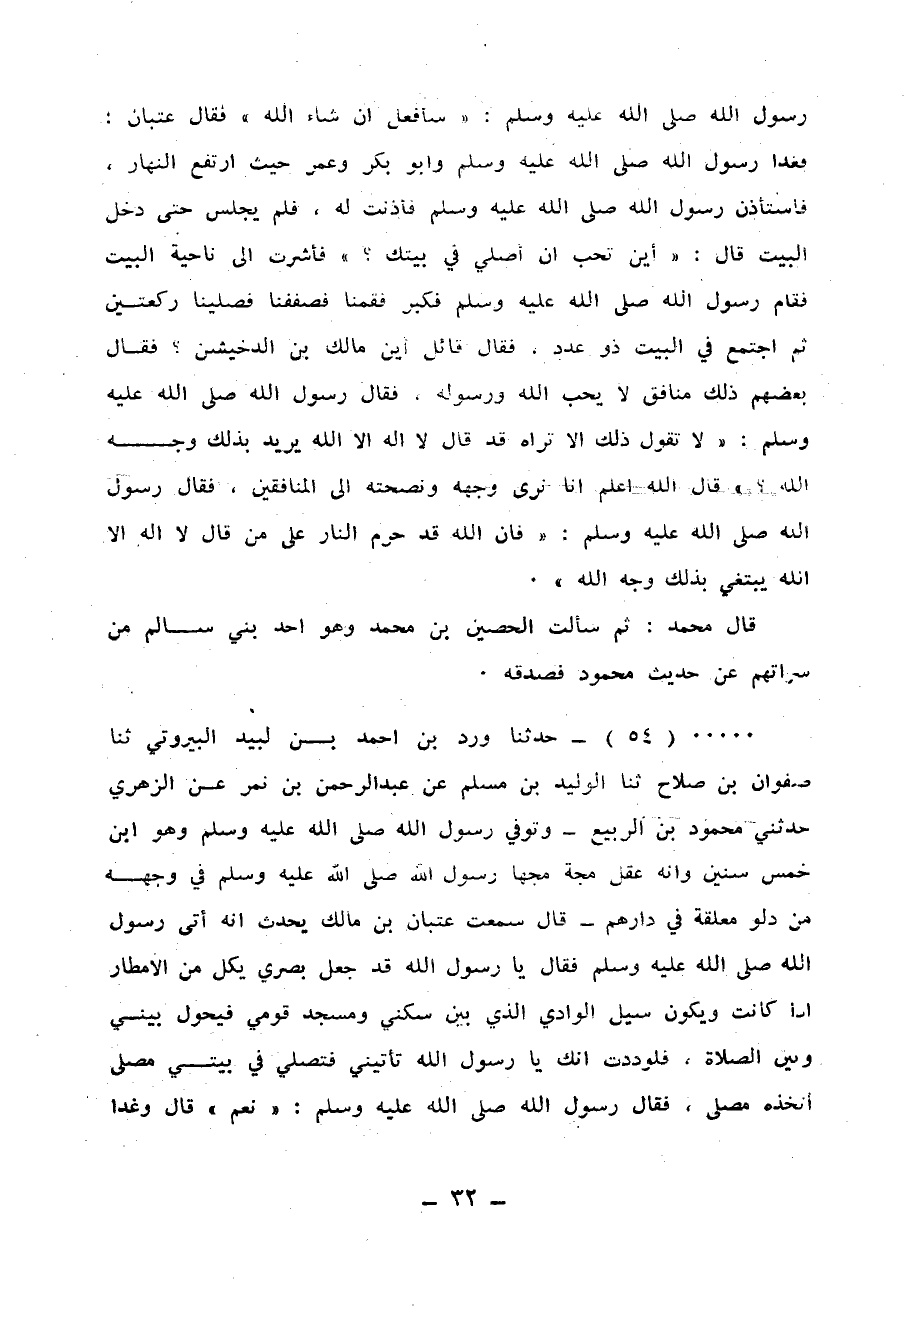 رسول الله صلى الله عليه وسلم : « سأفعل ان شاء الله » فقال عتبان :
فغدا رسول الله صلى الله عليه وسلم وابو بكر وعمر حيث ارتفع النهار ،
فاستأذن رسول الله صلى الله عليه وسلم فأذنت له ، فلم يجلس حتى دخل
البيت قال : « أين تحب ان أصلي في بيتك ؟ » فأشرت الى ناحية البيت
فقام رسول الله صلى الله عليه وسلم فكبر فقمنا فصففنا فصلينا ركعتـــين
ثم اجتمع في البيت ذو عدد ، فقال قائل أين مالك بن الدخيشن ؟ فقـــال
بعضهم ذلك منافق لا يحب الله ورسوله ، فقال رسول الله صلى الله عليه
وسلم : « لا تقول ذلك الا تراه قد قال لا اله الا الله يريد بذلك وجـــــه
الله ؟ » قال الله اعلم انا نرى وجهه ونصحته الى المنافقين ، فقال رسول
الله صلى الله عليه وسلم : « فان الله قد حرم النار على من قال لا اله الا
الله يبتغي بذلك وجه الله » .
قال محمد : ثم سألت الحصين بن محمد وهو احد بني ســـالم من
سراتهم عن حديث محمود فصدقه .
..... ( ٥٤ ) ــ حدثنا ورد بن احمد بـــن لبيد البيروتي ثنا
صفوان بن صلاح ثنا الوليد بن مسلم عن عبدالرحمن بن نمر عـــن الزهري
حدثني محمود بن الربيع ــ وتوفي رسول الله صلى الله عليه وسلم وهو ابن
خمس سنين وانه عقل مجة مجها رسول الله صلى الله عليه وسلم في وجهـــه
من دلو معلقة في دارهم ــ قال سمعت عتبان بن مالك يحدث انه أتى رسول
الله صلى الله عليه وسلم فقال يا رسول الله قد جعل بصري يكل من الامطار
اذا كانت ويكون سيل الوادي الذي بين سكني ومسجد قومي فيحول بينـــي
وبين الصلاة ، فلوددت انك يا رسول الله تأتيني فتصلي في بيتـــي مصلى
أتخذه مصلى ، فقال رسول الله صلى الله عليه وسلم : « نعم » قال وغدا
ــ ٣٢ ــ